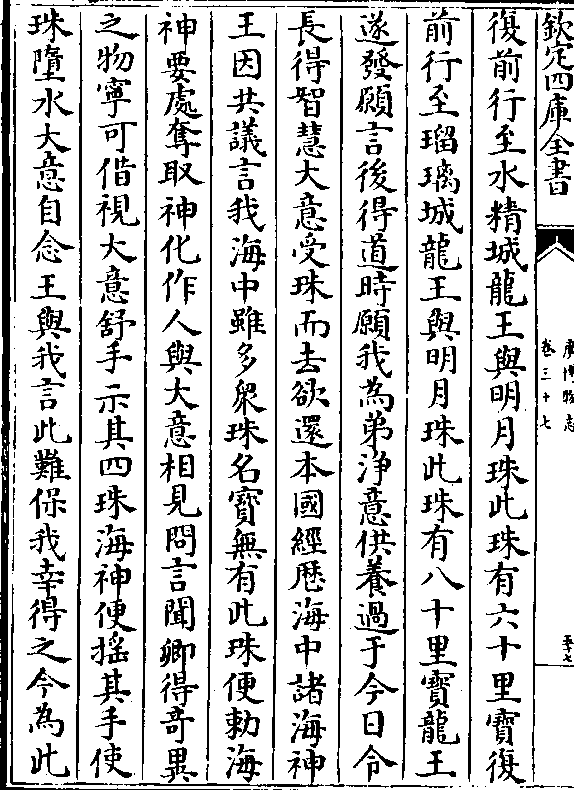 欽定四庫全書
廣博物志
卷三十七
復前行至水精城龍王與明月珠此珠有六十里寳復
前行至瑠璃城龍王與明月珠此珠有八十里寳龍王
遂發願言後得道時願我為弟浄意供養過于今日令
長得智慧大意受珠而去欲還本國經歴海中諸海神
王因共議言我海中雖多衆珠名寳無有此珠便勅海
神要處奪取神化作人與大意相見問言聞卿得奇異
之物寧可借視大意舒手示其四珠海神便揺其手使
珠墮水大意自念王與我言此難保我幸得之今為此